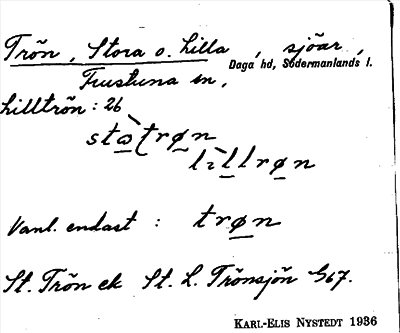 Trön, Stora o. Lilla, sjöar,
Daga hd, Södermanlands l.
Frustuna sn,
Lilltrön: 26
stɷ̀trøn
lìllrøn
Vanl. endast : trøn
St. Trön ek St. L. Trönsjön G67.
KARL-ELIS NYSTEDT 1936